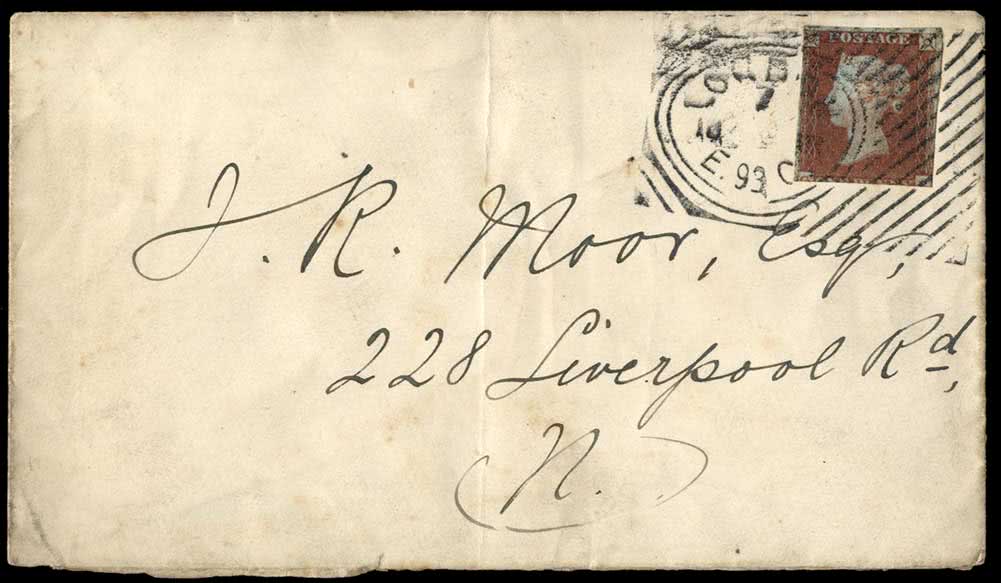 POSTAGE
7
E. 93 C
J. R. Moor, Esq,
228 Liverpool Rd,
N.